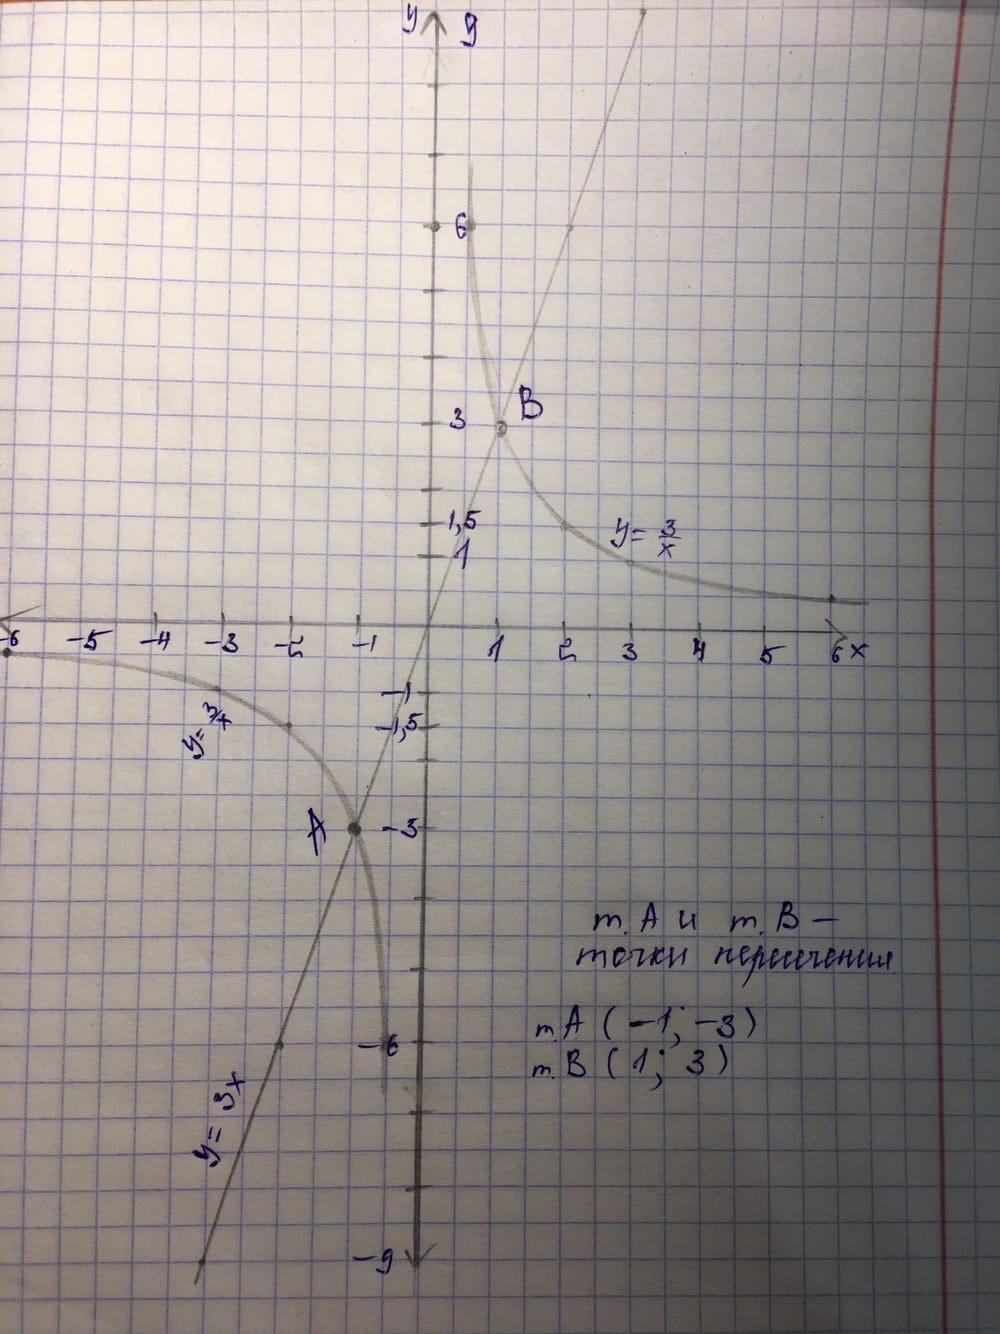 y 9
6
B
3
1,5
y = 3/x
1
-6 -5 -4 -3 -2 -1 1 2 3 4 5 6 x
-1
y = 3/x
-1,5
A
-3
т. А и т. В –
точки пересечения
т. А ( -1; -3)
-6
т. В ( 1; 3)
y = 3x
-9